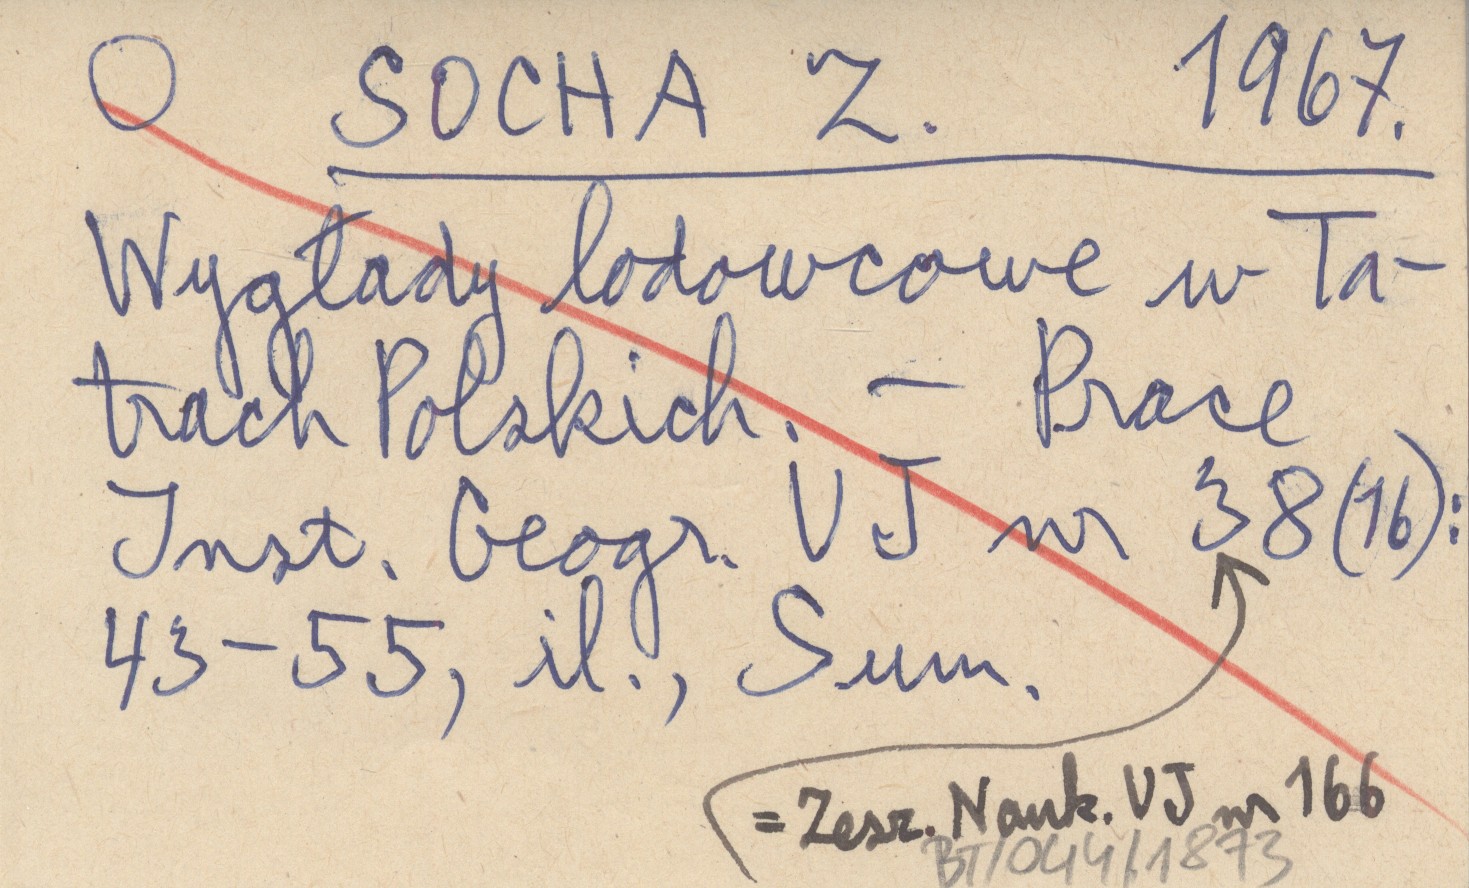 SOCHA Z. 1967.
Wygłady lodowcowe w Ta-
trach Polskich. – Prace
Inst. Geogr. UJ nr 38(16):
43–55, il., Sum.
= Zesz. Nauk. UJ nr 166
BT/044/1873